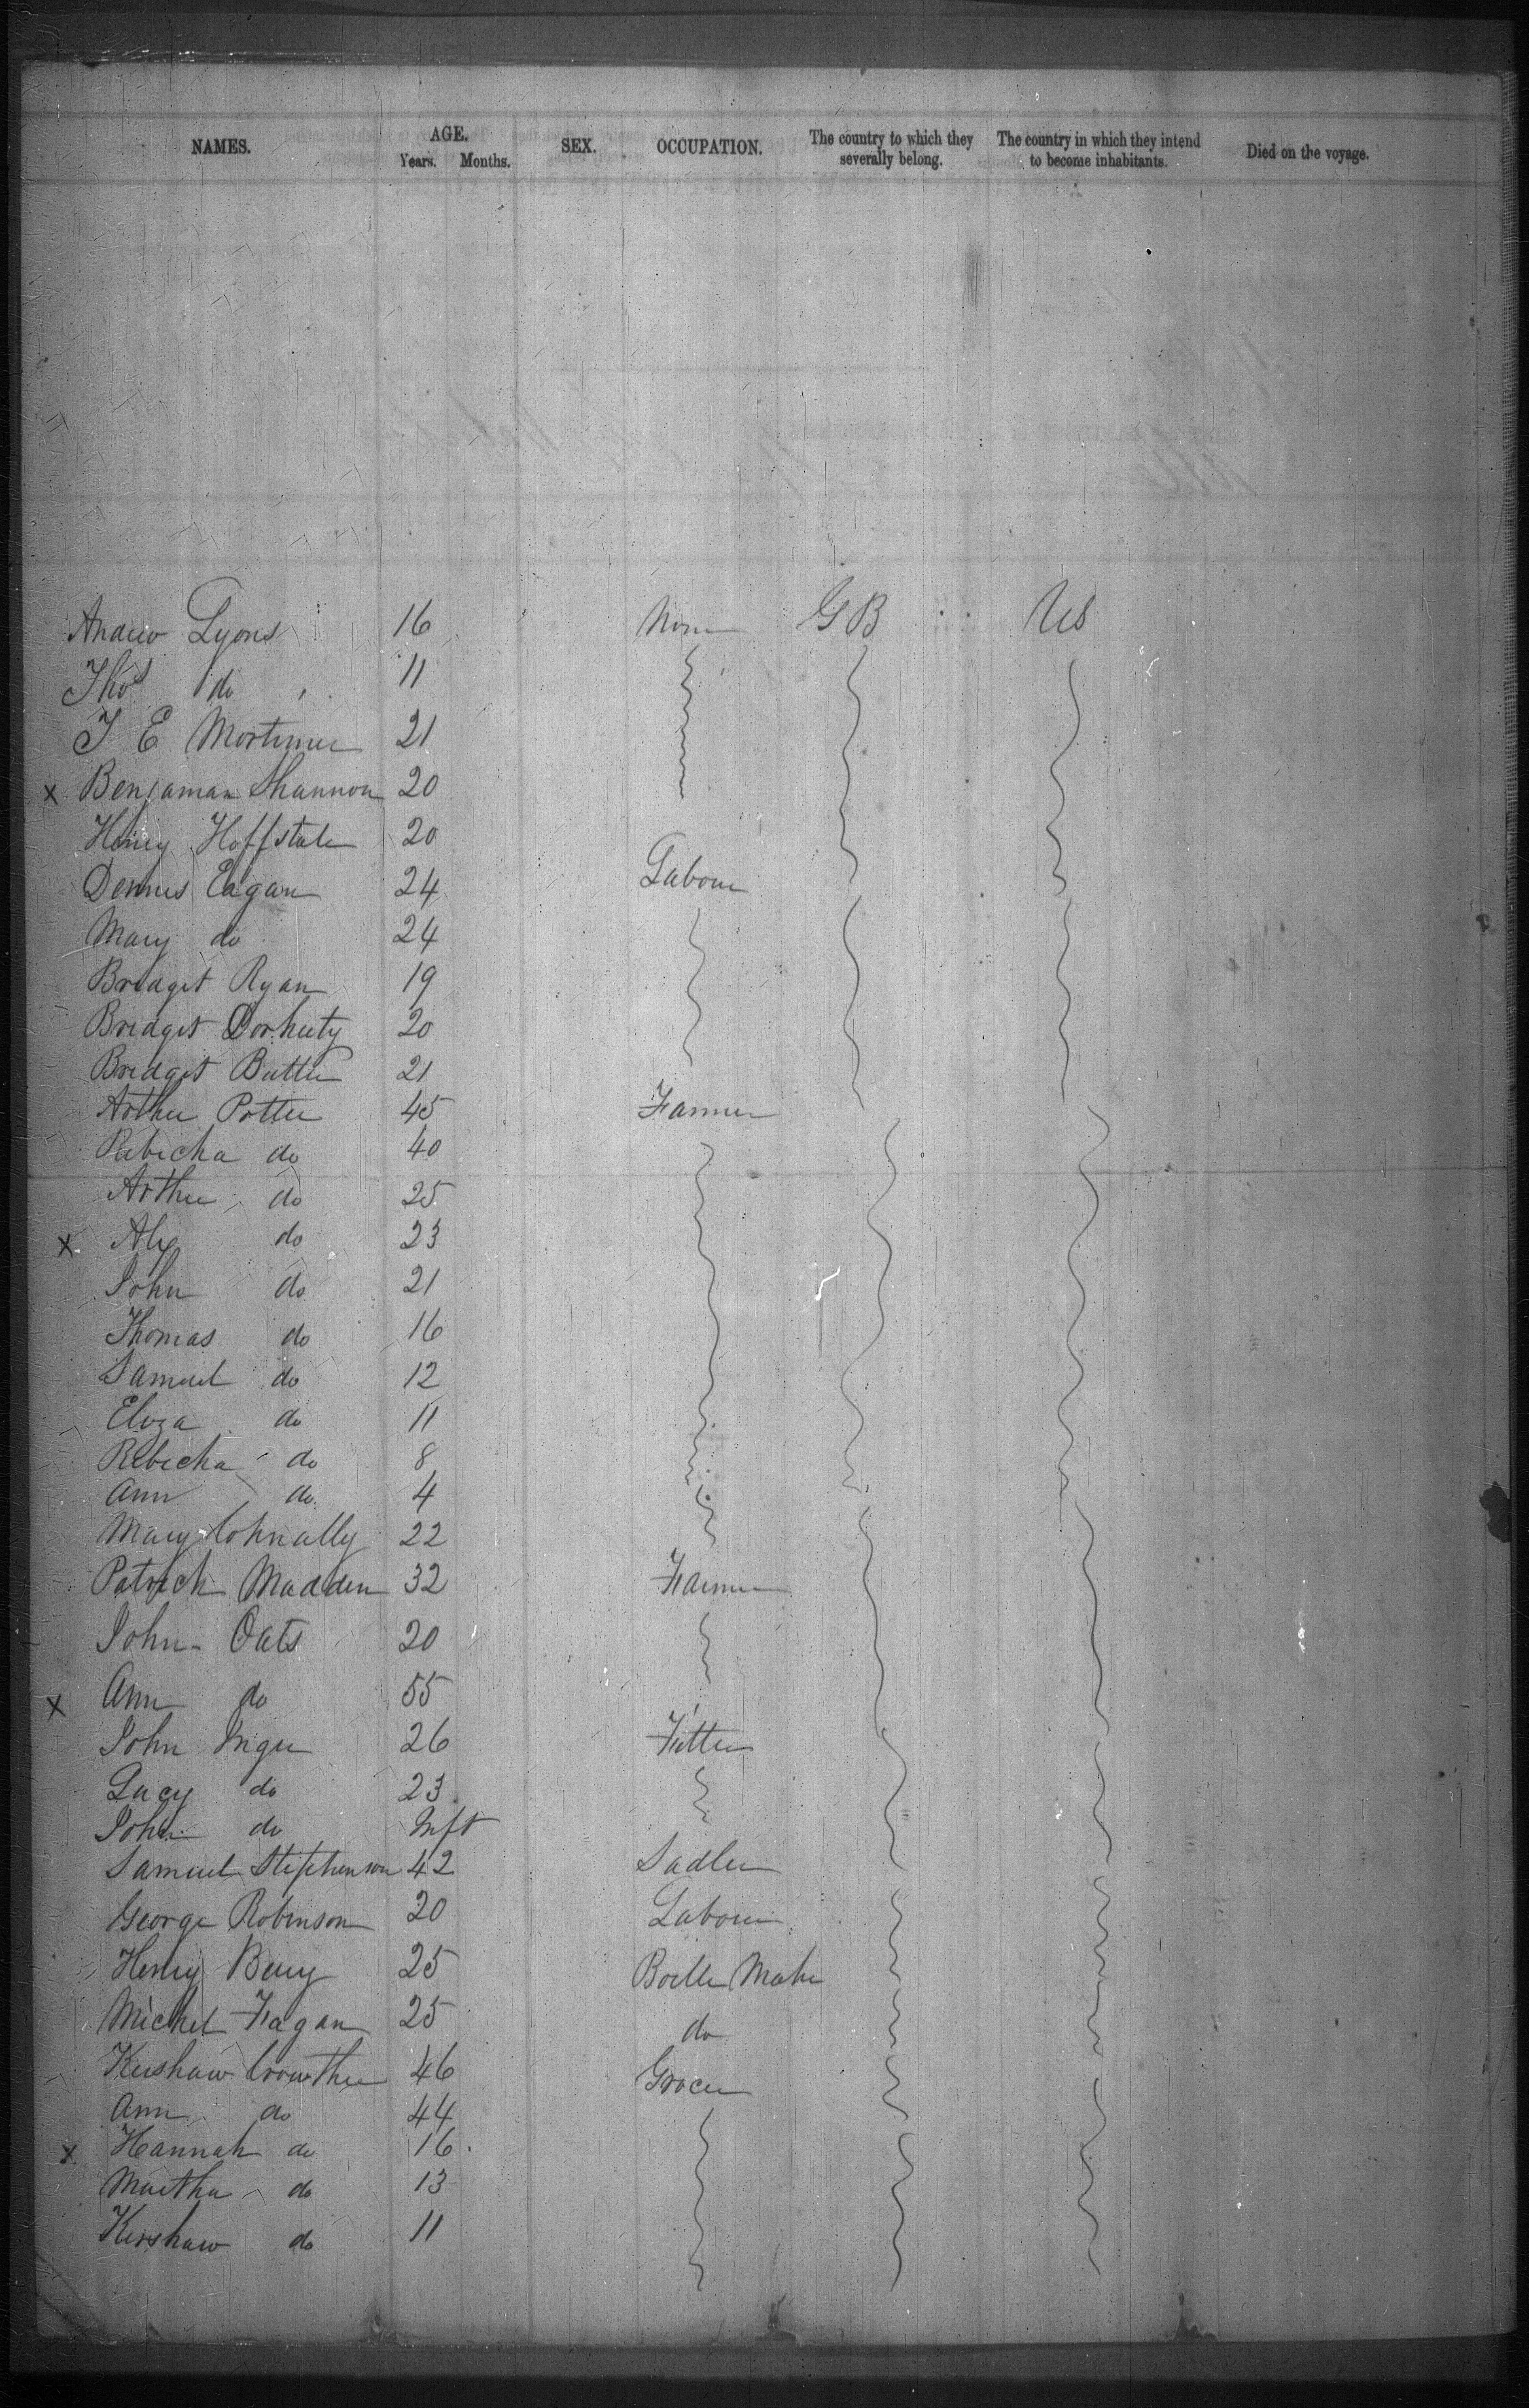 NAMES. AGE. Years. Months. SEX. OCCUPATION. The country to which they severally belong. The country in which they intend to become inhabitants. Died on the voyage.
Andrew Lyons 16 None G B U S
Thos do 11
J E Mortimer 21
x Benjaman Shannon 20
Henry 20
Dennis Eagan 24 Labour
Mary do 24
Bridget Ryan 19
Bridget Dorherty 20
Bridget Butler 21
Arthur Potter 45 Farmer
Rebicha do 40
Arthur do 25
x Alex do 23
John do 21
Thomas do 16
Samuel do 12
Eliza do 11
Rebicha do 8
Ann do 4
Mary Connally 22
Patrick Madden 32 Farmer
John Oats 20
x Ann do 55
John 26 Fitter
Lucy do 23
John do Inft
Samuel Stephenson 42 Sadler
George Robinson 20 Labour
Henry Berry 25 Boiler Maker
Michel Fagan 25 do
Kershaw Crowther 46 Grocer
Ann do 44
x Hannah do 16
Martha do 13
Kershaw do 11